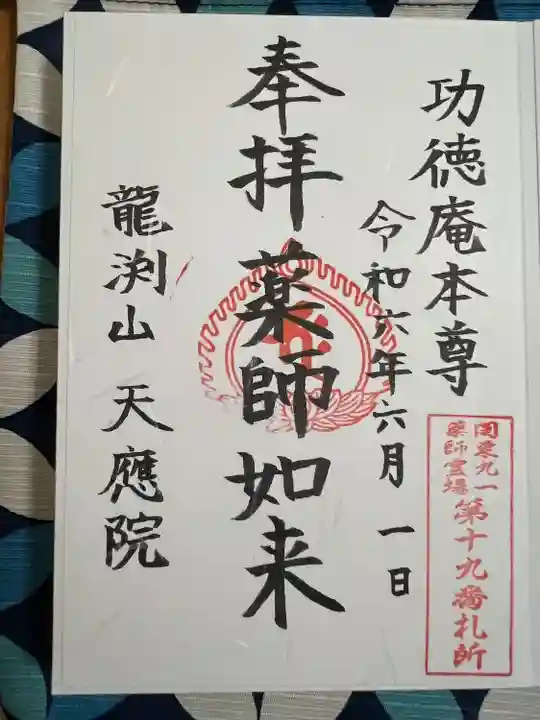 功徳庵本尊
関東九一
薬師霊場
第十九番札所
令和六年六月一日
奉拝 薬師如来
龍渕山 天應院